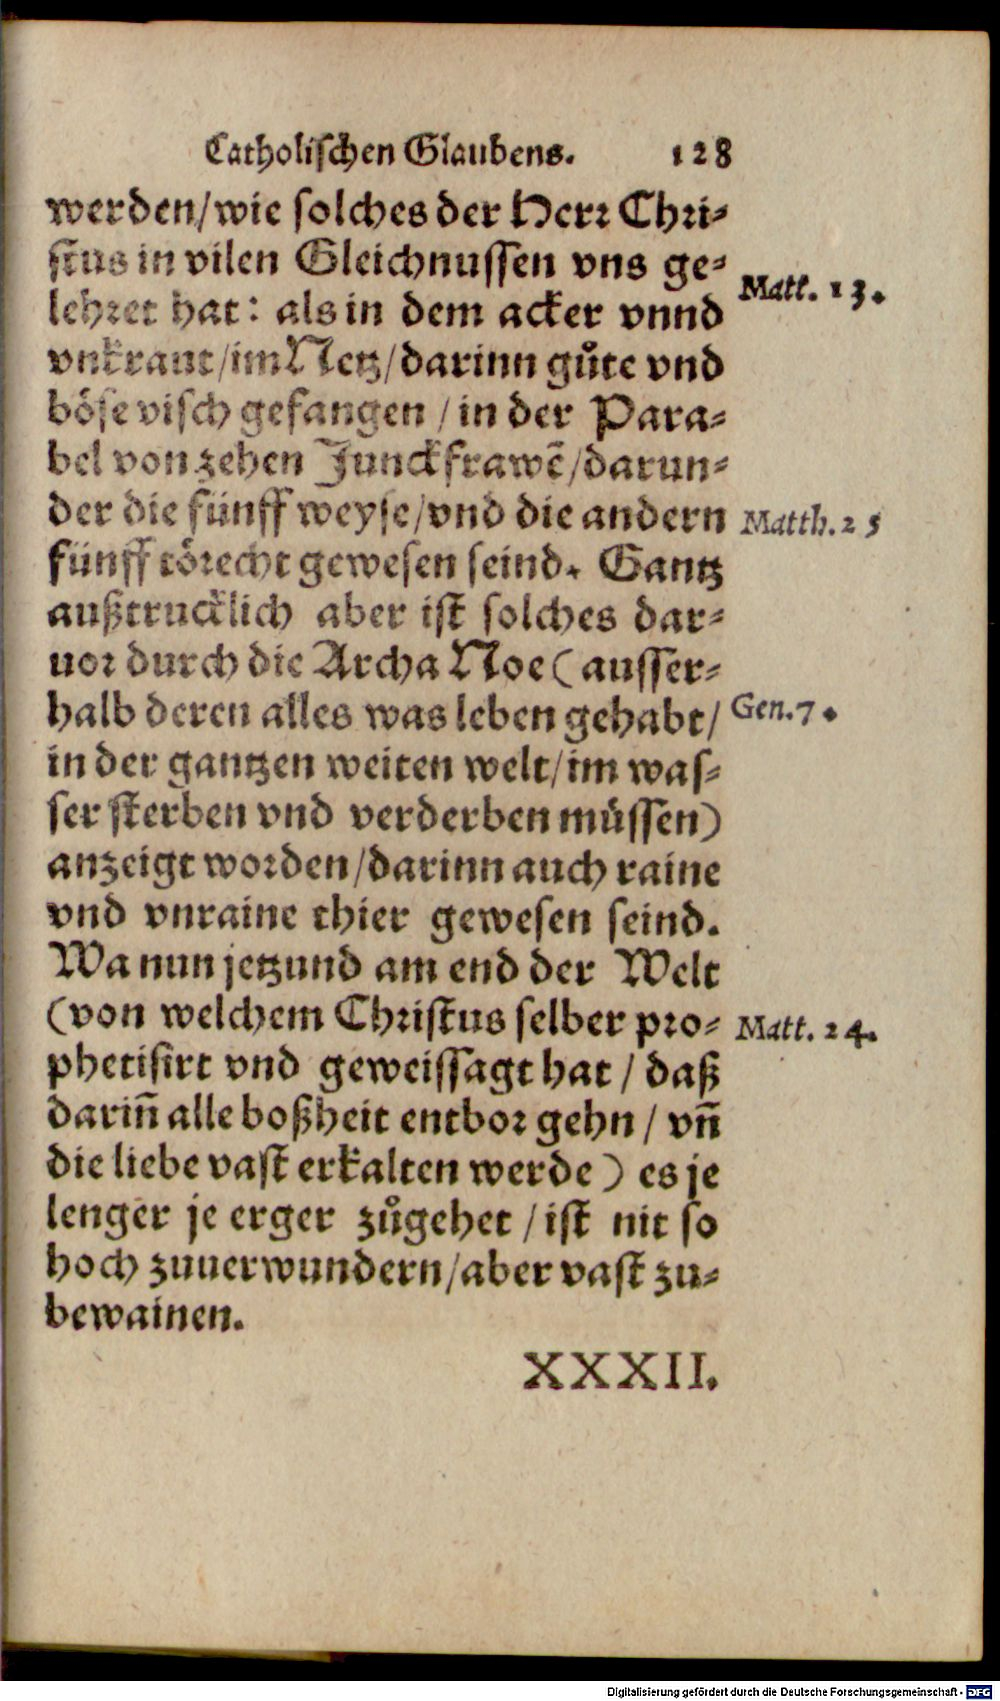 Catholischen Glaubens. 128
werden/wie solches der Herr Chri-
stus in vilen Gleichnussen vns ge-
Matt. 13.
lehret hat: als in dem acker vnnd
vnkraut/im Netz/darinn gůte vnd
böse visch gefangen / in der Para-
bel von zehen Junckfrawē/darun-
der die fünff weyse/vnd die andern
Matth. 25
fünff törecht gewesen seind. Gantz
außtrucklich aber ist solches dar-
uor durch die Archa Noe (ausser-
halb deren alles was leben gehabt/
Gen. 7.
in der gantzen weiten welt/im was-
ser sterben vnd verderben müssen)
anzeigt worden/darinn auch raine
vnd vnraine thier gewesen seind.
Wa nun jetzund am end der Welt
(von welchem Christus selber pro-
Matt. 24.
phetisirt vnd geweissagt hat / daß
dariñ alle boßheit entbor gehn / vñ
die liebe vast erkalten werde) es je
lenger je erger zůgehet / ist nit so
hoch zuuerwundern/aber vast zu-
bewainen.
XXXII.
Digitalisierung gefördert durch die Deutsche Forschungsgemeinschaft - DFG